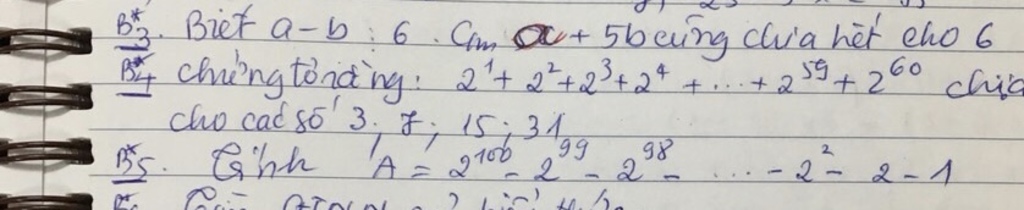 B*3. Biết a-b ⋮ 6. Cm a + 5b cũng chia hết cho 6
B*4 chứng tỏ rằng: 2¹ + 2² + 2³ + 2⁴ + ... + 2⁵⁹ + 2⁶⁰ chia
cho các số 3; 7; 15; 31
B*5. Tính A = 2¹⁰⁰ - 2⁹⁹ - 2⁹⁸ - .... - 2² - 2 - 1